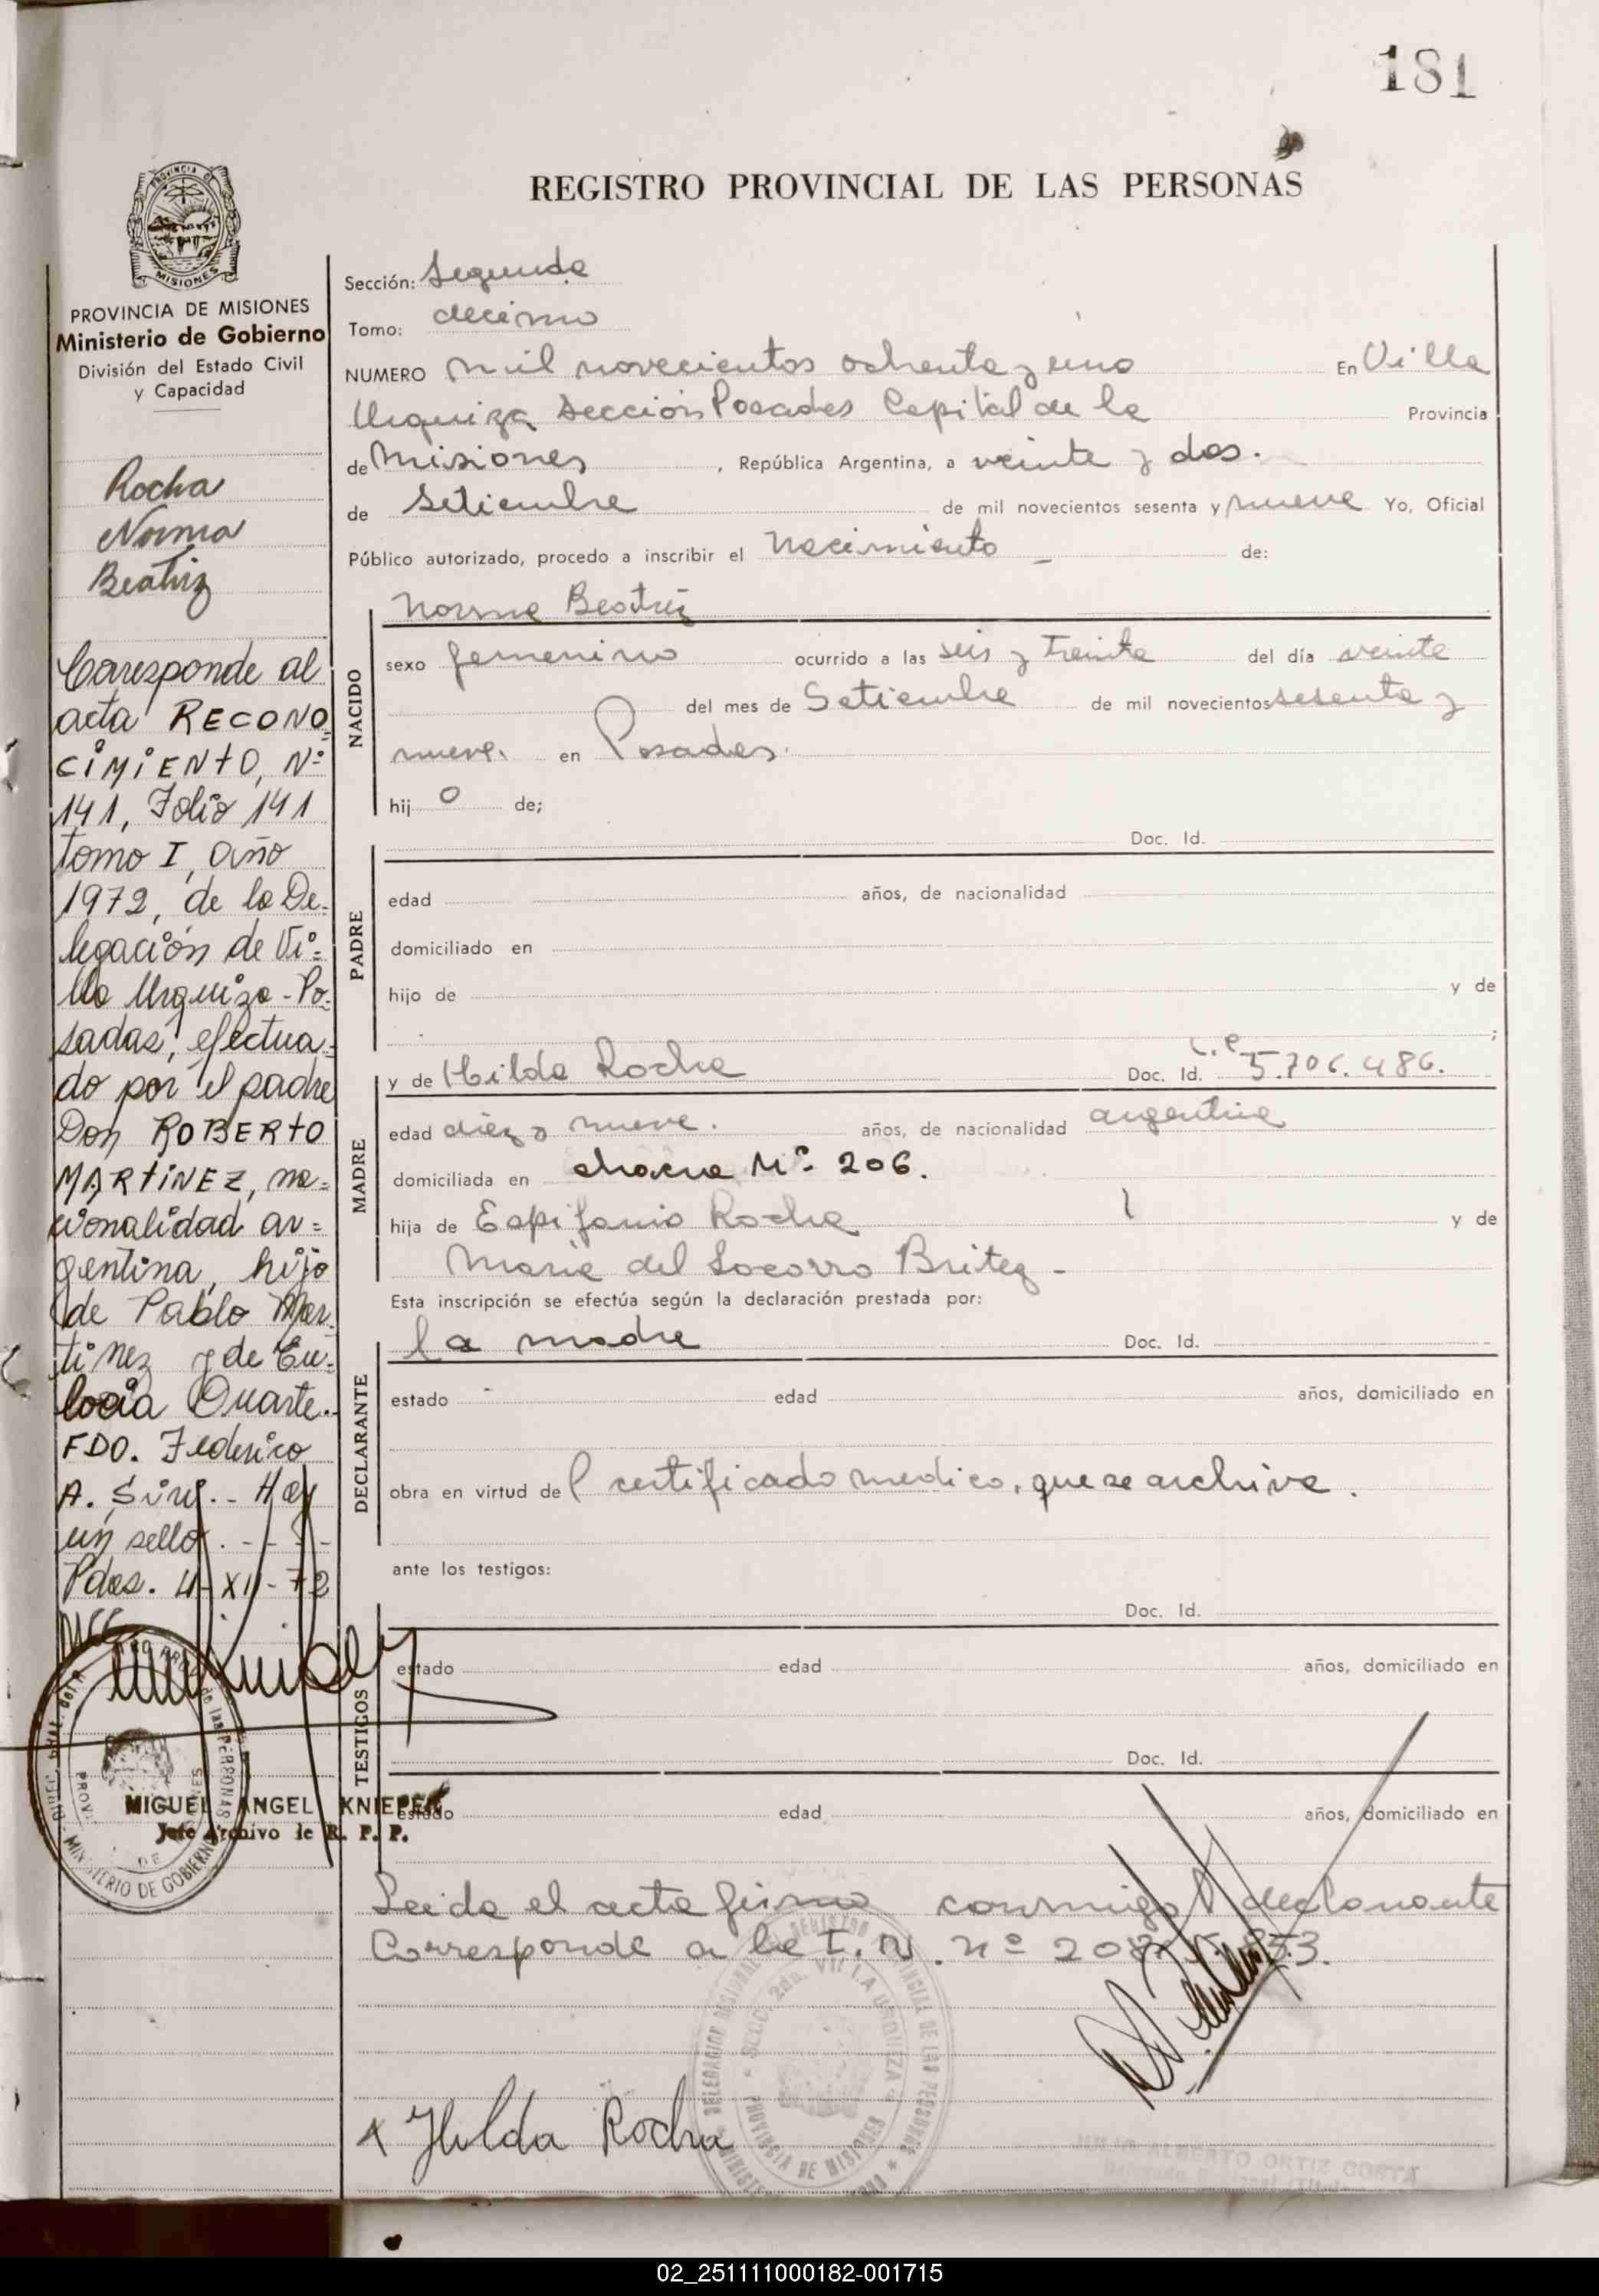 181
REGISTRO PROVINCIAL DE LAS PERSONAS
PROVINCIA DE MISIONES
Ministerio de Gobierno
División del Estado Civil
y Capacidad
Rocha
Norma
Beatriz
Corresponde al
acta RECONO
CIMIENTO, Nº
141, Folio 141
tomo I, año
1972, de la De-
legación de Vi=
lla Urquiza - Po=
sadas, efectua=
do por el padre
Don ROBERTO
MARTINEZ, na=
cionalidad ar=
gentina, hijo
de Pablo Mar=
tinez y de Eu=
locia Duarte.
FDO. Federico
A. - Hay
un sello. - - -
Pdas. 4-XII-72
MIGUEL ANGEL KNIEPER
Jefe Archivo de R. P. P.
MINISTERIO DE GOBIERNO
Sección: Segunda
Tomo: decimo
NUMERO mil novecientos ochenta y uno En Villa
Urquiza Sección Posadas Capital de la Provincia
de Misiones, República Argentina, a veinte y dos.
de Setiembre de mil novecientos sesenta y nueve Yo, Oficial
Público autorizado, procedo a inscribir el Nacimiento _ de:
Norma Beatriz
NACIDO
sexo femenino ocurrido a las seis y treinta del día veinte
del mes de Setiembre de mil novecientos sesenta y
nueve. en Posadas.
hij o de;
Doc. Id.
PADRE
edad años, de nacionalidad
domiciliado en
hijo de y de
;
y de Hilda Rocha Doc. Id. L.C. 5.706.486.
MADRE
edad diez y nueve. años, de nacionalidad argentina
domiciliada en chacra Nº 206.
hija de Espifanio Rocha y de
Maria del Socorro Britez -
Esta inscripción se efectúa según la declaración prestada por:
la madre Doc. Id.
DECLARANTE
estado - edad años, domiciliado en
obra en virtud del certificado medico, que se archiva.
ante los testigos:
Doc. Id.
TESTIGOS
estado edad años, domiciliado en
Doc. Id.
estado edad años, domiciliado en
Leida el acta firma conmigo declarante
Corresponde a la I. N. nº
SECC. 2da. VILLA URQUIZA
PROVINCIA DE MISIONES
x Hilda Rocha
ALBERTO ORTIZ COSTA
02_251111000182-001715